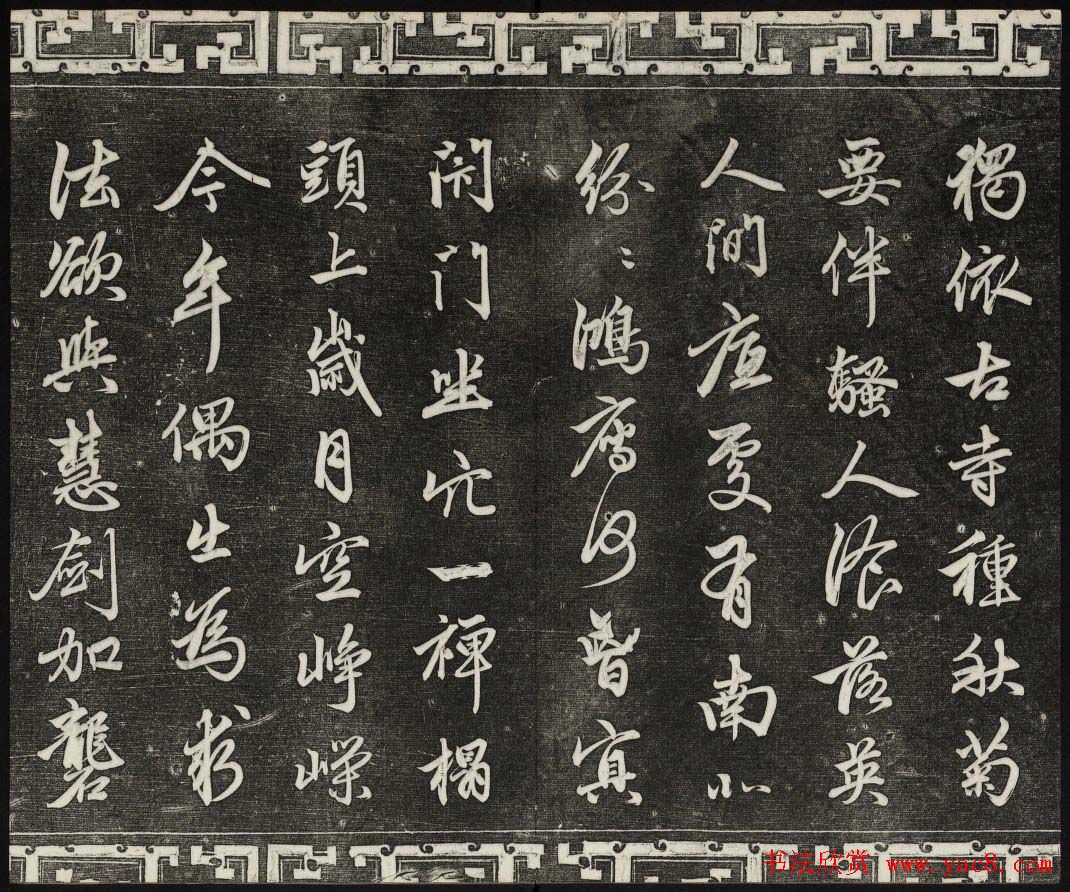 獨依古寺種秋菊
要伴騷人飡落英
人間底處有南北
紛〻鴻雁何曾冥
閉門坐穴一禪榻
頭上歲月空崢嶸
今年偶出為求
法欲與慧劍加礱
书法欣赏 www.yac8.com